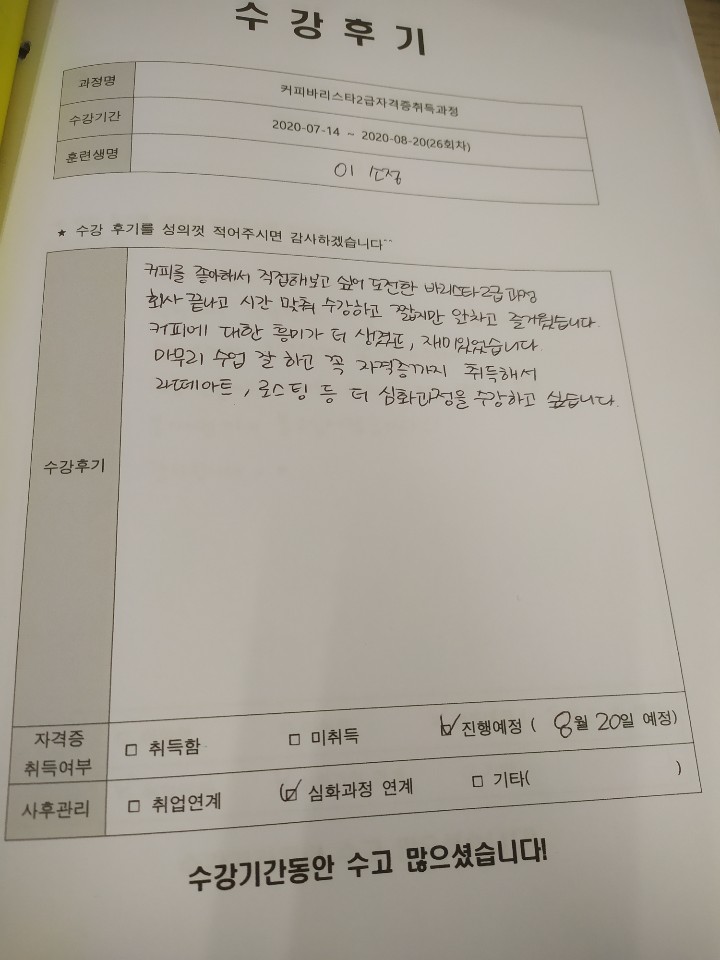 수강후기
과정명 커피바리스타2급자격증취득과정
수강기간 2020-07-14 ~ 2020-08-20(26회차)
훈련생명 이소정
★ 수강 후기를 성의껏 적어주시면 감사하겠습니다^^
수강후기
커피를 좋아해서 직접해보고 싶어 도전한 바리스타2급과정
회사 끝나고 시간 맞춰 수강하고 짧지만 알차고 즐거웠습니다.
커피에 대한 흥미가 더 생겼고, 재미있었습니다.
마무리 수업 잘 하고 꼭 자격증까지 취득해서
라떼아트, 로스팅 등 더 심화과정을 수강하고 싶습니다.
자격증 취득여부 □ 취득함 □ 미취득 ☑ 진행예정 ( 8월 20일 예정)
사후관리 □ 취업연계 ☑ 심화과정 연계 □ 기타( )
수강기간동안 수고 많으셨습니다!